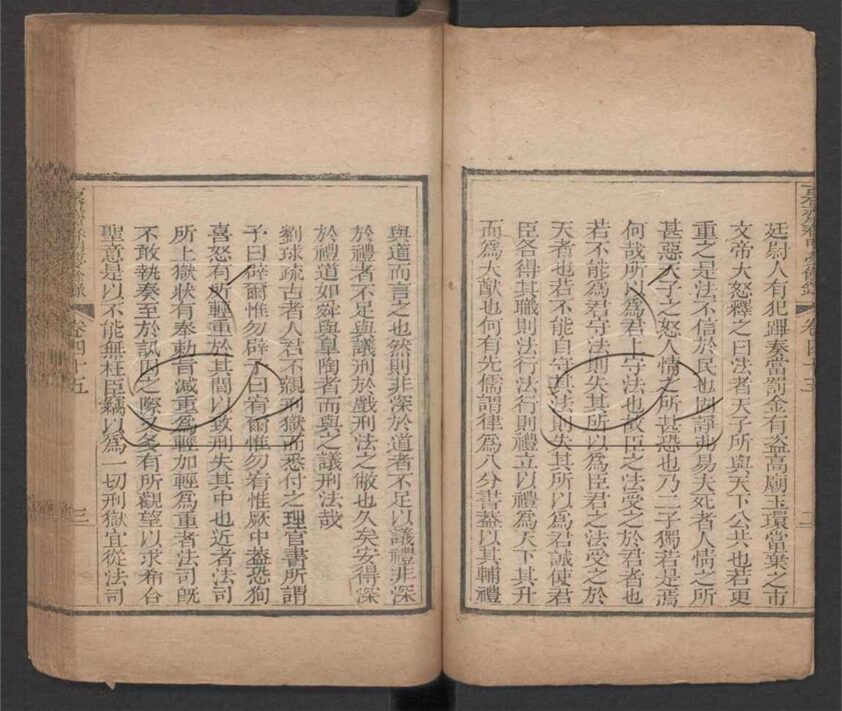 廷尉人有犯蹕奏當罰金有盜高廟玉環當棄之市
文帝大怒釋之曰法者天子所與天下公共也若更
重之是法不信於民也固諍弗易夫死者人情之所
甚惡天子之怒人情之所甚恐也乃二子獨若是焉
何哉所以為君上守法也故臣之法受之於君者也
若不能為君守法則失其所以為臣君之法受之於
天者也若不能自守其法則失其所以為君誠使君
臣各得其職則法行法行則禮立以禮為天下其升
而為大猷也何有先儒謂律為八分書蓋以其輔禮
卷四十五
二
與道而言之也然則非深於道者不足以議禮非深
於禮者不足與議刑於戲刑法之敝也久矣安得深
於禮道如舜與皐陶者而與之議刑法哉
劉球疏古者人君不親刑獄而悉付之理官書所謂
予曰辟爾惟勿辟予曰宥爾惟勿宥惟厥中蓋恐狥
喜怒有所輕重於其間以致刑失其中也近者法司
所上獄狀有奉勅旨減重為輕加輕為重者法司旣
不敢執奏至於訊囚之際又多有所觀望以求希合
聖意是以不能無枉臣竊以為一切刑獄宜從法司
卷四十五
三